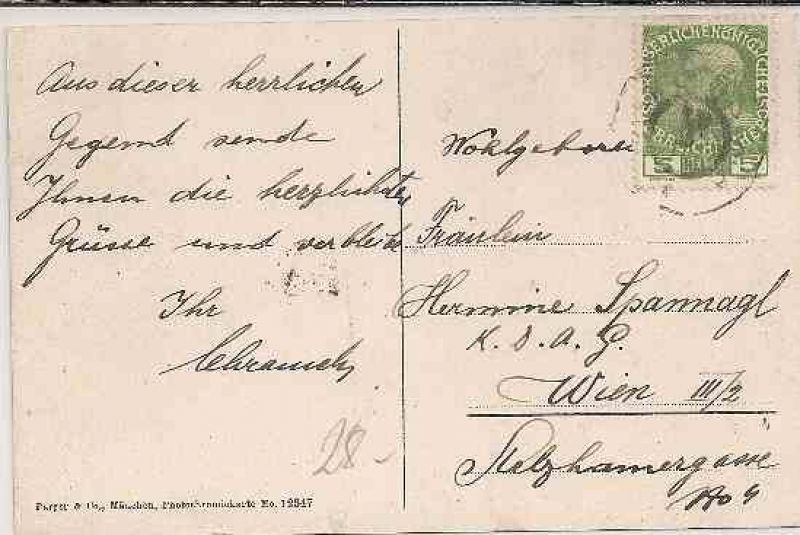 Aus dieser herrlichen
Gegend sende
Ihnen die herzlichsten
Grüsse und verbleibe
Ihr
28-
Purger & Co., München, Photochromiekarte No. 12347
5 5
Wohlgeboren
Fräulein
Hermine Spannagl
Wien III/2
Stelzhamergasse
No 4